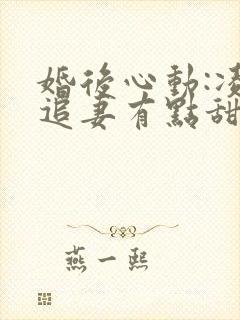 婚後心動:凌
追妻有點甜
燕一熙